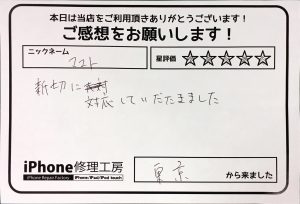 本日は当店をご利用頂きありがとうございます！
ご感想をお願いします！
ニックネーム
マユト
星評価 ★★★★★
新切に
対応していだたきました
iPhone修理工房
iPhone Repair Factory iPhone/iPad/iPod touch
東京 から来ました